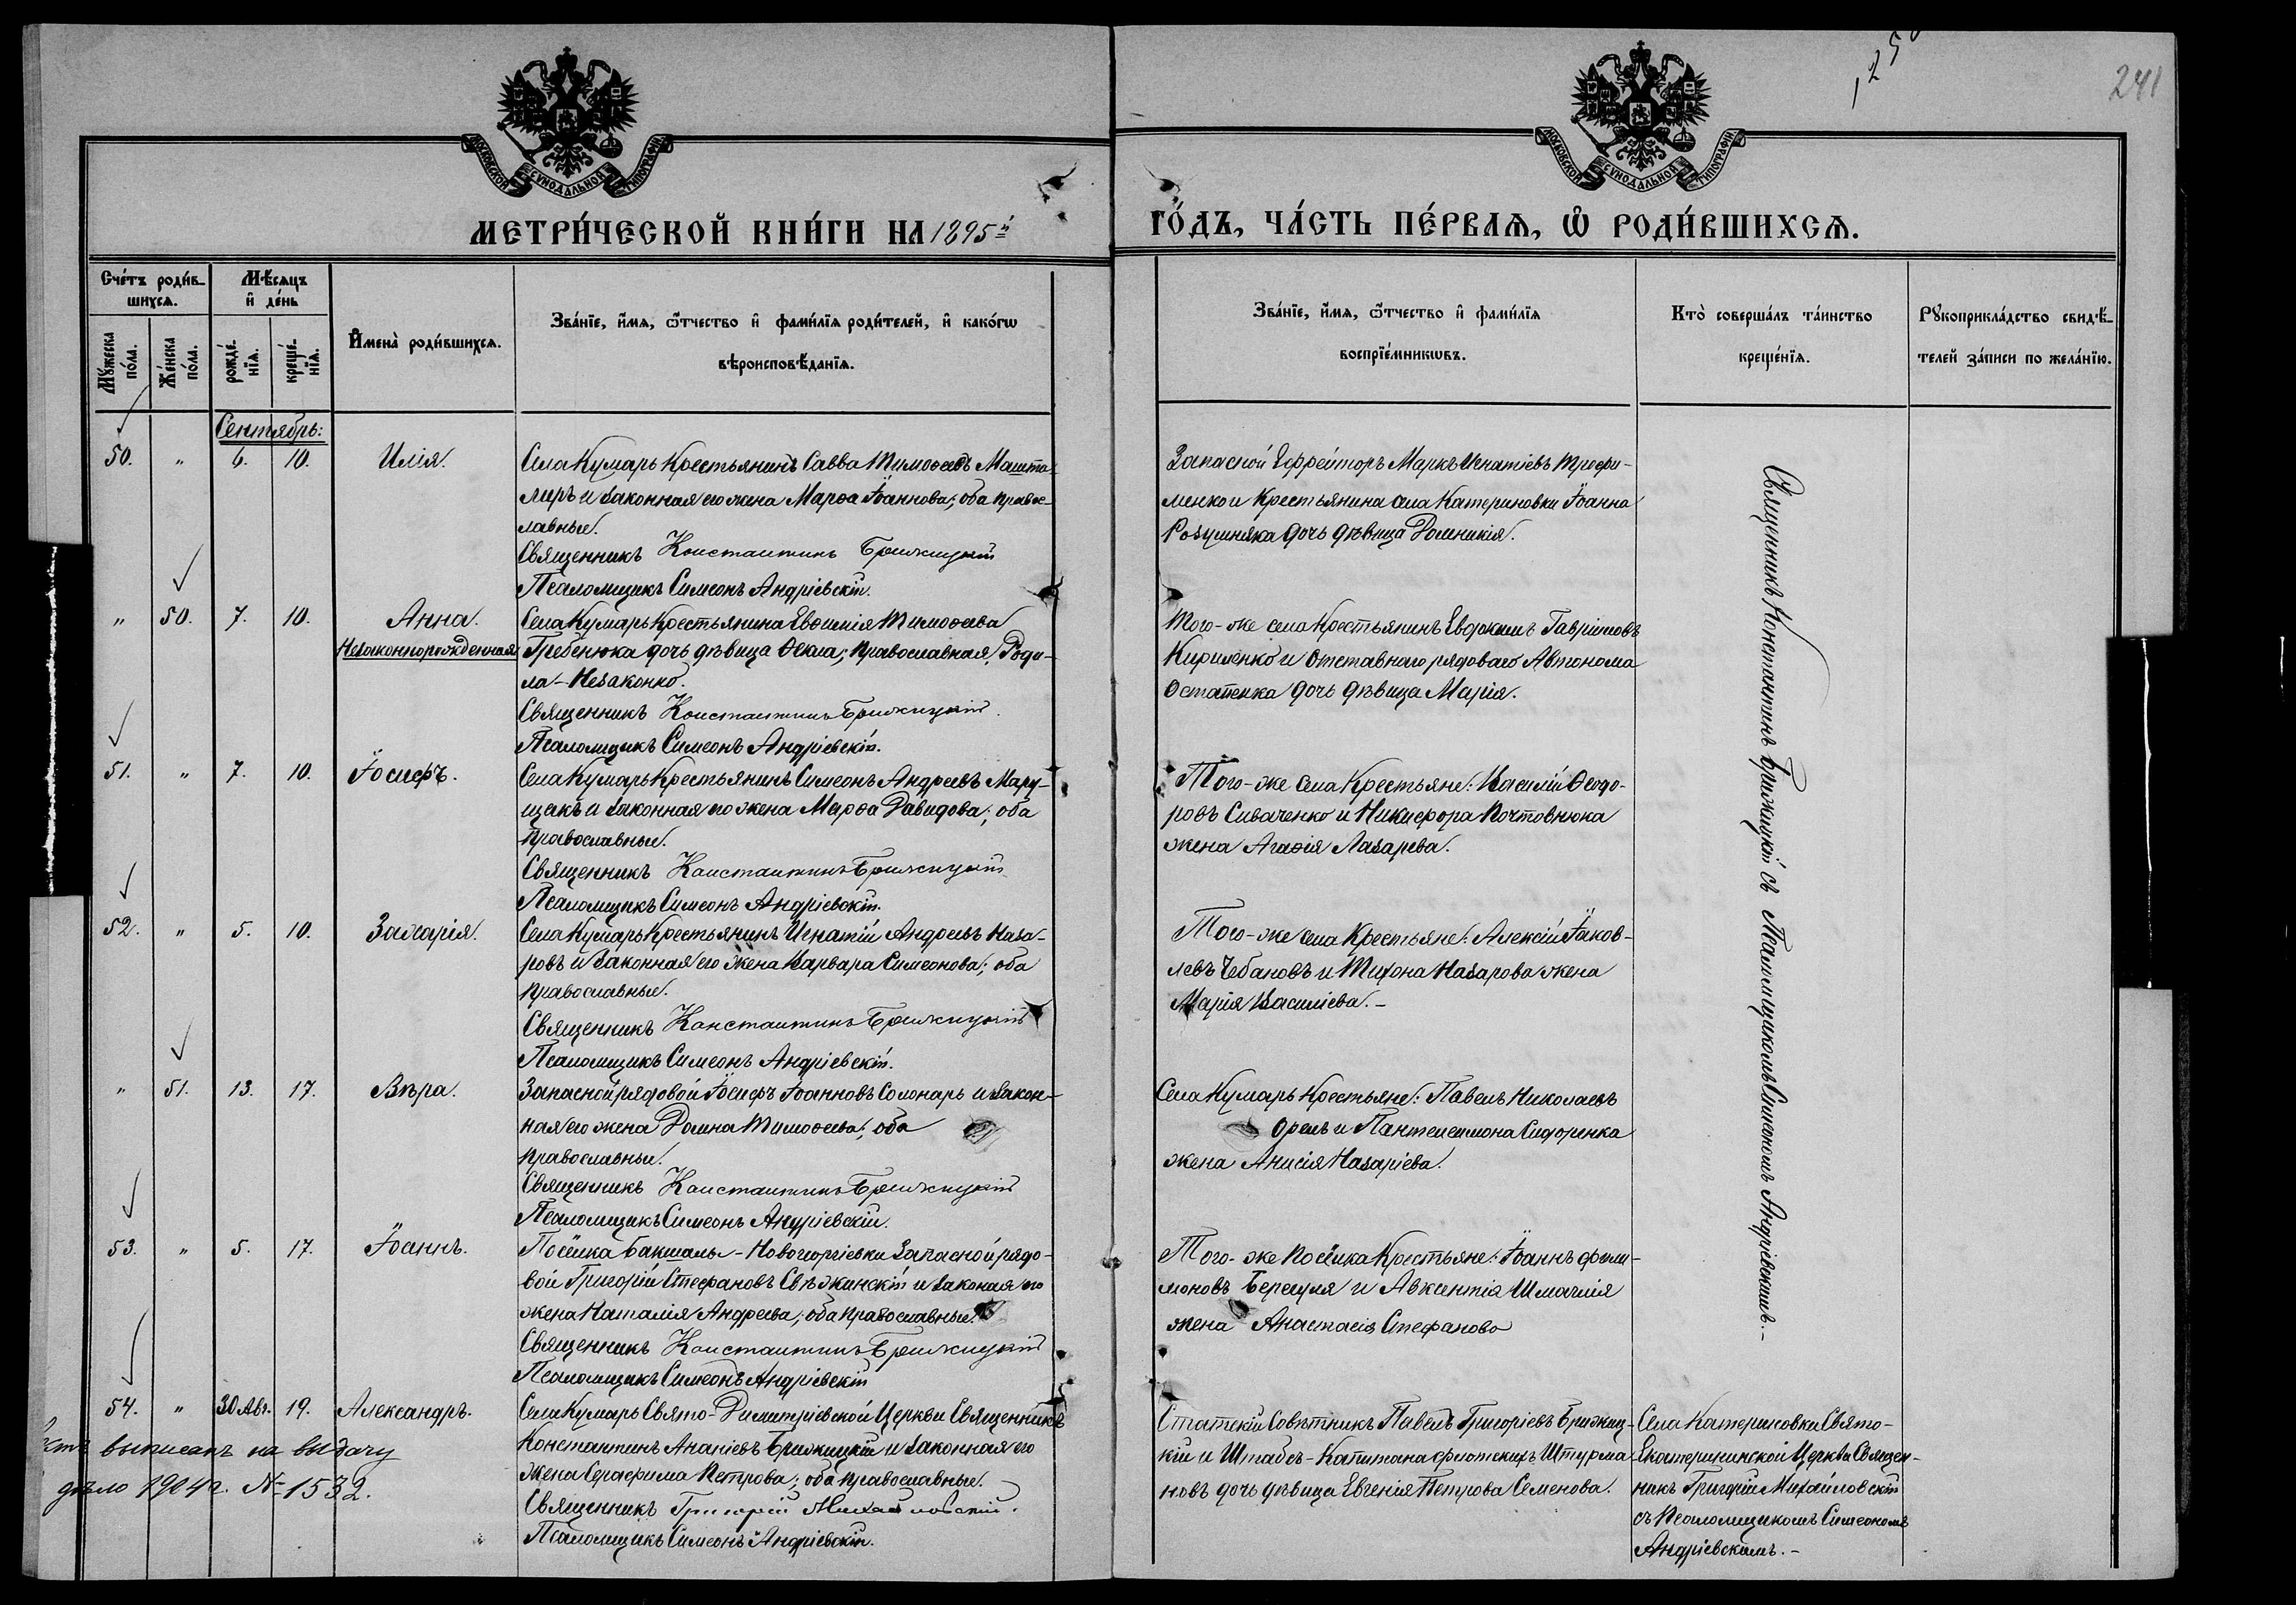 1250
241
МОСКОВСКОЙ СѴНОДАЛЬНОЙ ТИПОГРАФІИ
МОСКОВСКОЙ СѴНОДАЛЬНОЙ ТИПОГРАФІИ
МЕТРИ́ЧЕСКОЙ КНИ́ГИ НА 1895й
ГО́ДЪ, ЧА́СТЬ ПЕ́РВАѦ, Ѡ҆ РОДИ́ВШИХСѦ.
Сче́тъ роди́в-
шихсѧ.
Мѣ́сѧцъ
и҆ де́нь
Мꙋ́жеска по́ла.
Же́нска по́ла.
рожде́-
нїѧ.
креще́-
нїѧ.
И҆мена̀ роди́вшихсѧ.
Зва́нїе, и҆́мѧ, ѻ҆́тчество и҆ фами́лїѧ роди́телей, и҆ како́гѡ
вѣроисповѣ́данїѧ.
Зва́нїе, и҆́мѧ, ѻ҆́тчество и҆ фами́лїѧ
воспрїе́мникѡвъ.
Кто̀ соверша́лъ та́инство
креще́нїѧ.
Рꙋкоприкла́дство свидѣ́-
телей за́писи по жела́нїю.
Сентябрь:
50. " 6. 10. Илія.
Села Кумарь Крестьянинъ Савва Тимоѳеевъ Машта-
лиръ и законная его жена Марѳа Іоаннова; оба правос-
лавные.
Священникъ Константинъ Брижицкій
Псаломщикъ Симеонъ Андріевскій.
Запасной Ефрейторъ Маркъ Игнатіевъ Трофи-
менко и Крестьянина села Катериновки Іоанна
дочь дѣвица Домникія.
" 50. 7. 10. Анна.
Незаконнорожденная
Села Кумарь Крестьянина Евѳимія Тимоѳеева
Гребенюка дочь дѣвица Ѳекла; Православная, Роди-
ла-Незаконно.
Священникъ Константинъ Брижицкій.
Псаломщикъ Симеонъ Андріевскій.
Того-же села Крестьянинъ Евдокимъ Гавріиловъ
Кириленко и отставного рядоваго Автонома
Остапенка дочь дѣвица Марія.
51. " 7. 10. Іосифъ.
Села Кумарь Крестьянинъ Симеонъ Андреевъ Мару-
щакъ и законная его жена Марѳа Давидова; оба
православные.
Священникъ Константинъ Брижицкій
Псаломщикъ Симеонъ Андріевскій.
Того-же села Крестьяне: Василій Ѳеодо-
ровъ Сиваченко и Никифора Почтовнюка
жена Агаѳія Лазарева.
52. " 5. 10. Захарія.
Села Кумарь Крестьянинъ Игнатій Андреевъ Наза-
ровъ и законная его жена Варвара Симеонова; оба
православные.
Священникъ Константинъ Брижицкій
Псаломщикъ Симеонъ Андріевскій.
Того-же села Крестьяне: Алексій Іаков-
левъ Чебановъ и Тихона Назарова жена
Марія Василіева.-
" 51. 13. 17. Вѣра.
Запасной рядовой Іосифъ Іоанновъ Солонарь и закон-
ная его жена Домна Тимоѳеева; оба
православные.
Священникъ Константинъ Брижицкій
Псаломщикъ Симеонъ Андріевскій.
Села Кумарь Крестьяне: Павелъ Николаевъ
Орелъ и Пантелеимона Сидоренка
жена Анисія Назаріева.
53. " 5. 17. Іоаннъ.
Посёлка Бакшалы-Новогеоргіевки Запасной рядо-
вой Григорій Стефановъ Свѣжинскій и законая его
жена Наталія Андреева; оба православные.
Священникъ Константинъ Брижицкій
Псаломщикъ Симеонъ Андріевскій
Того-же Посёлка Крестьяне: Іоаннъ Фили-
моновъ и Авксентія
жена Анастасія Стефанова
Священникъ Константинъ Брижицкій съ Псаломщикомъ Симеономъ Андріевскимъ.-
54. " 30 Авг. 19. Александръ.
Села Кумарь Свято-Димитріевской Церкви Священникъ
Константинъ Ананіевъ Брижицкій и законная его
жена Серафима Петрова; оба православные.
Священникъ Григорій Михайловскій.
Псаломщикъ Симеонъ Андріевскій.
Статскій Совѣтникъ Павелъ Григоріевъ Брижиц-
кій и Штабсъ-Капитана флотскихъ Штурма-
новъ дочь дѣвица Евгенія Петрова Семенова.
Села Катериновки Свято-
Екатерининской Церкви Священ-
никъ Григорій Михайловскій
съ Псаломщикомъ Симеономъ
Андріевскимъ.-
выписанъ на выдачу
дѣло 1904 г. № 1532.